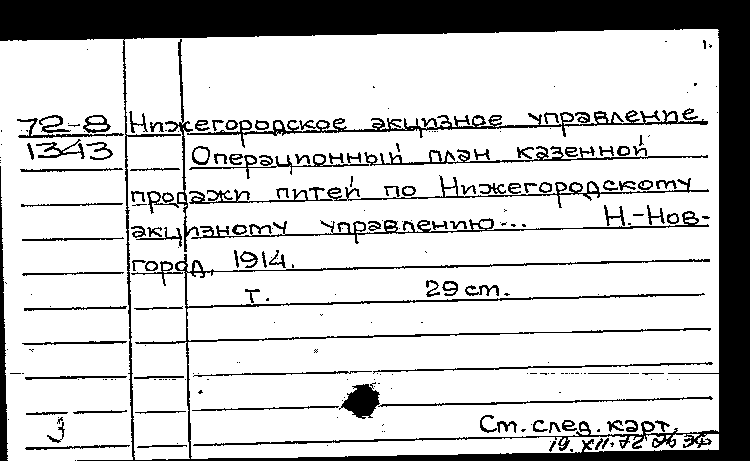 1.
72-8 Нижегородское акцизное управление.
1343 Операционный план казенной
продажи питей по Нижегородскому
акцизному управлению... Н.-Нов-
город, 1914.
т. 29 ст.
Ст. след. карт.
19.XII.72